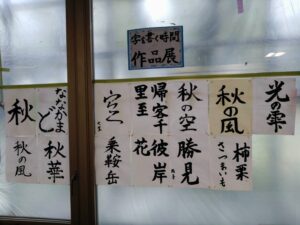 字を書く時間
作品展
光の雫
秋の風
柿栗
さつまいも
秋の空
勝見
帰客千里至
彼岸花
乗鞍岳
ななかまど
秋華
秋
秋の風